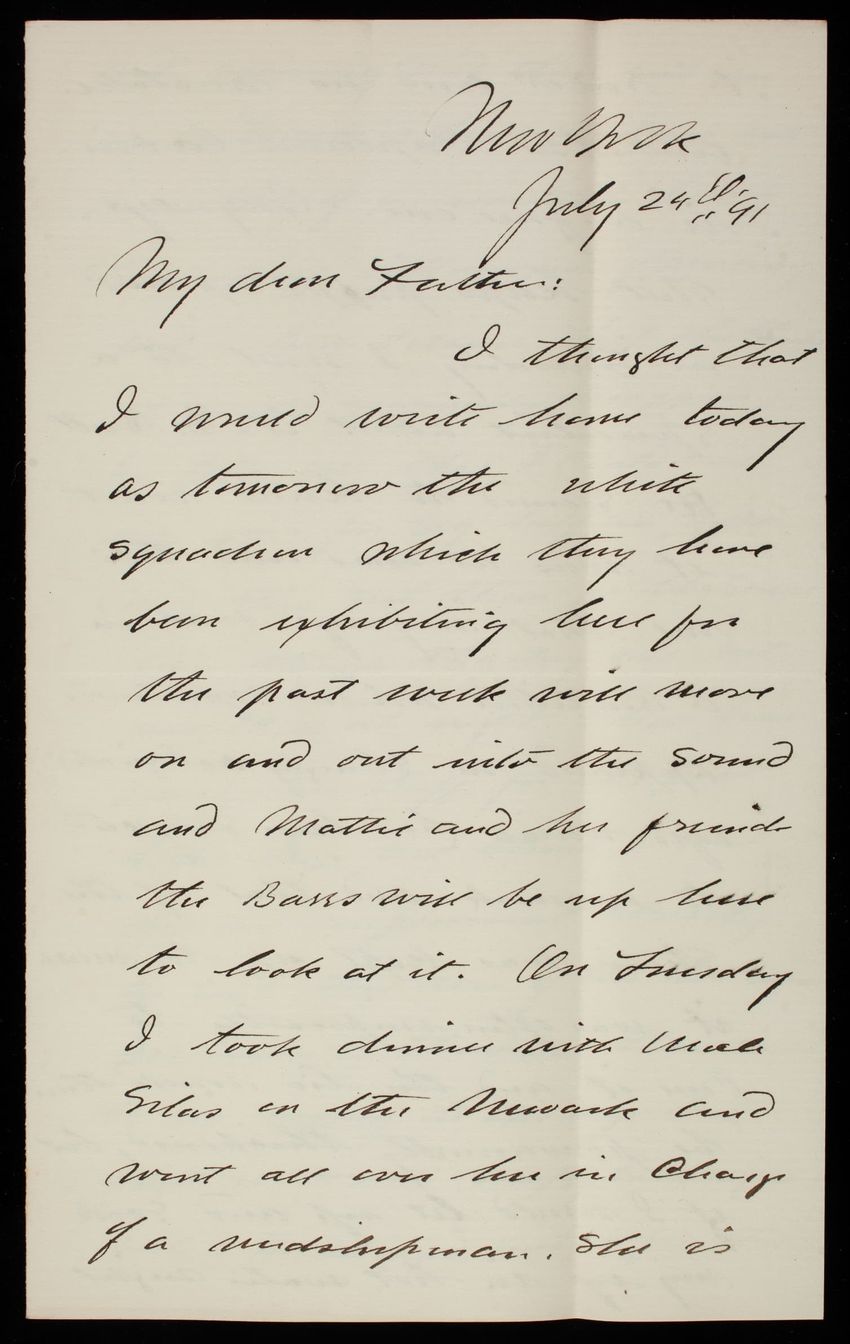 New York
July 24th "91
My dear Father:
I thought that
I would write home today
as tomorrow the white
squadron which they have
been exhibiting here for
the past week will move
on and out into the Sound
and Mattie and her friends
the Barrs will be up here
to look at it. On Tuesday
I took dinner with Uncle
Silas on the Newark and
went all over her in charge
of a midshipman. She is